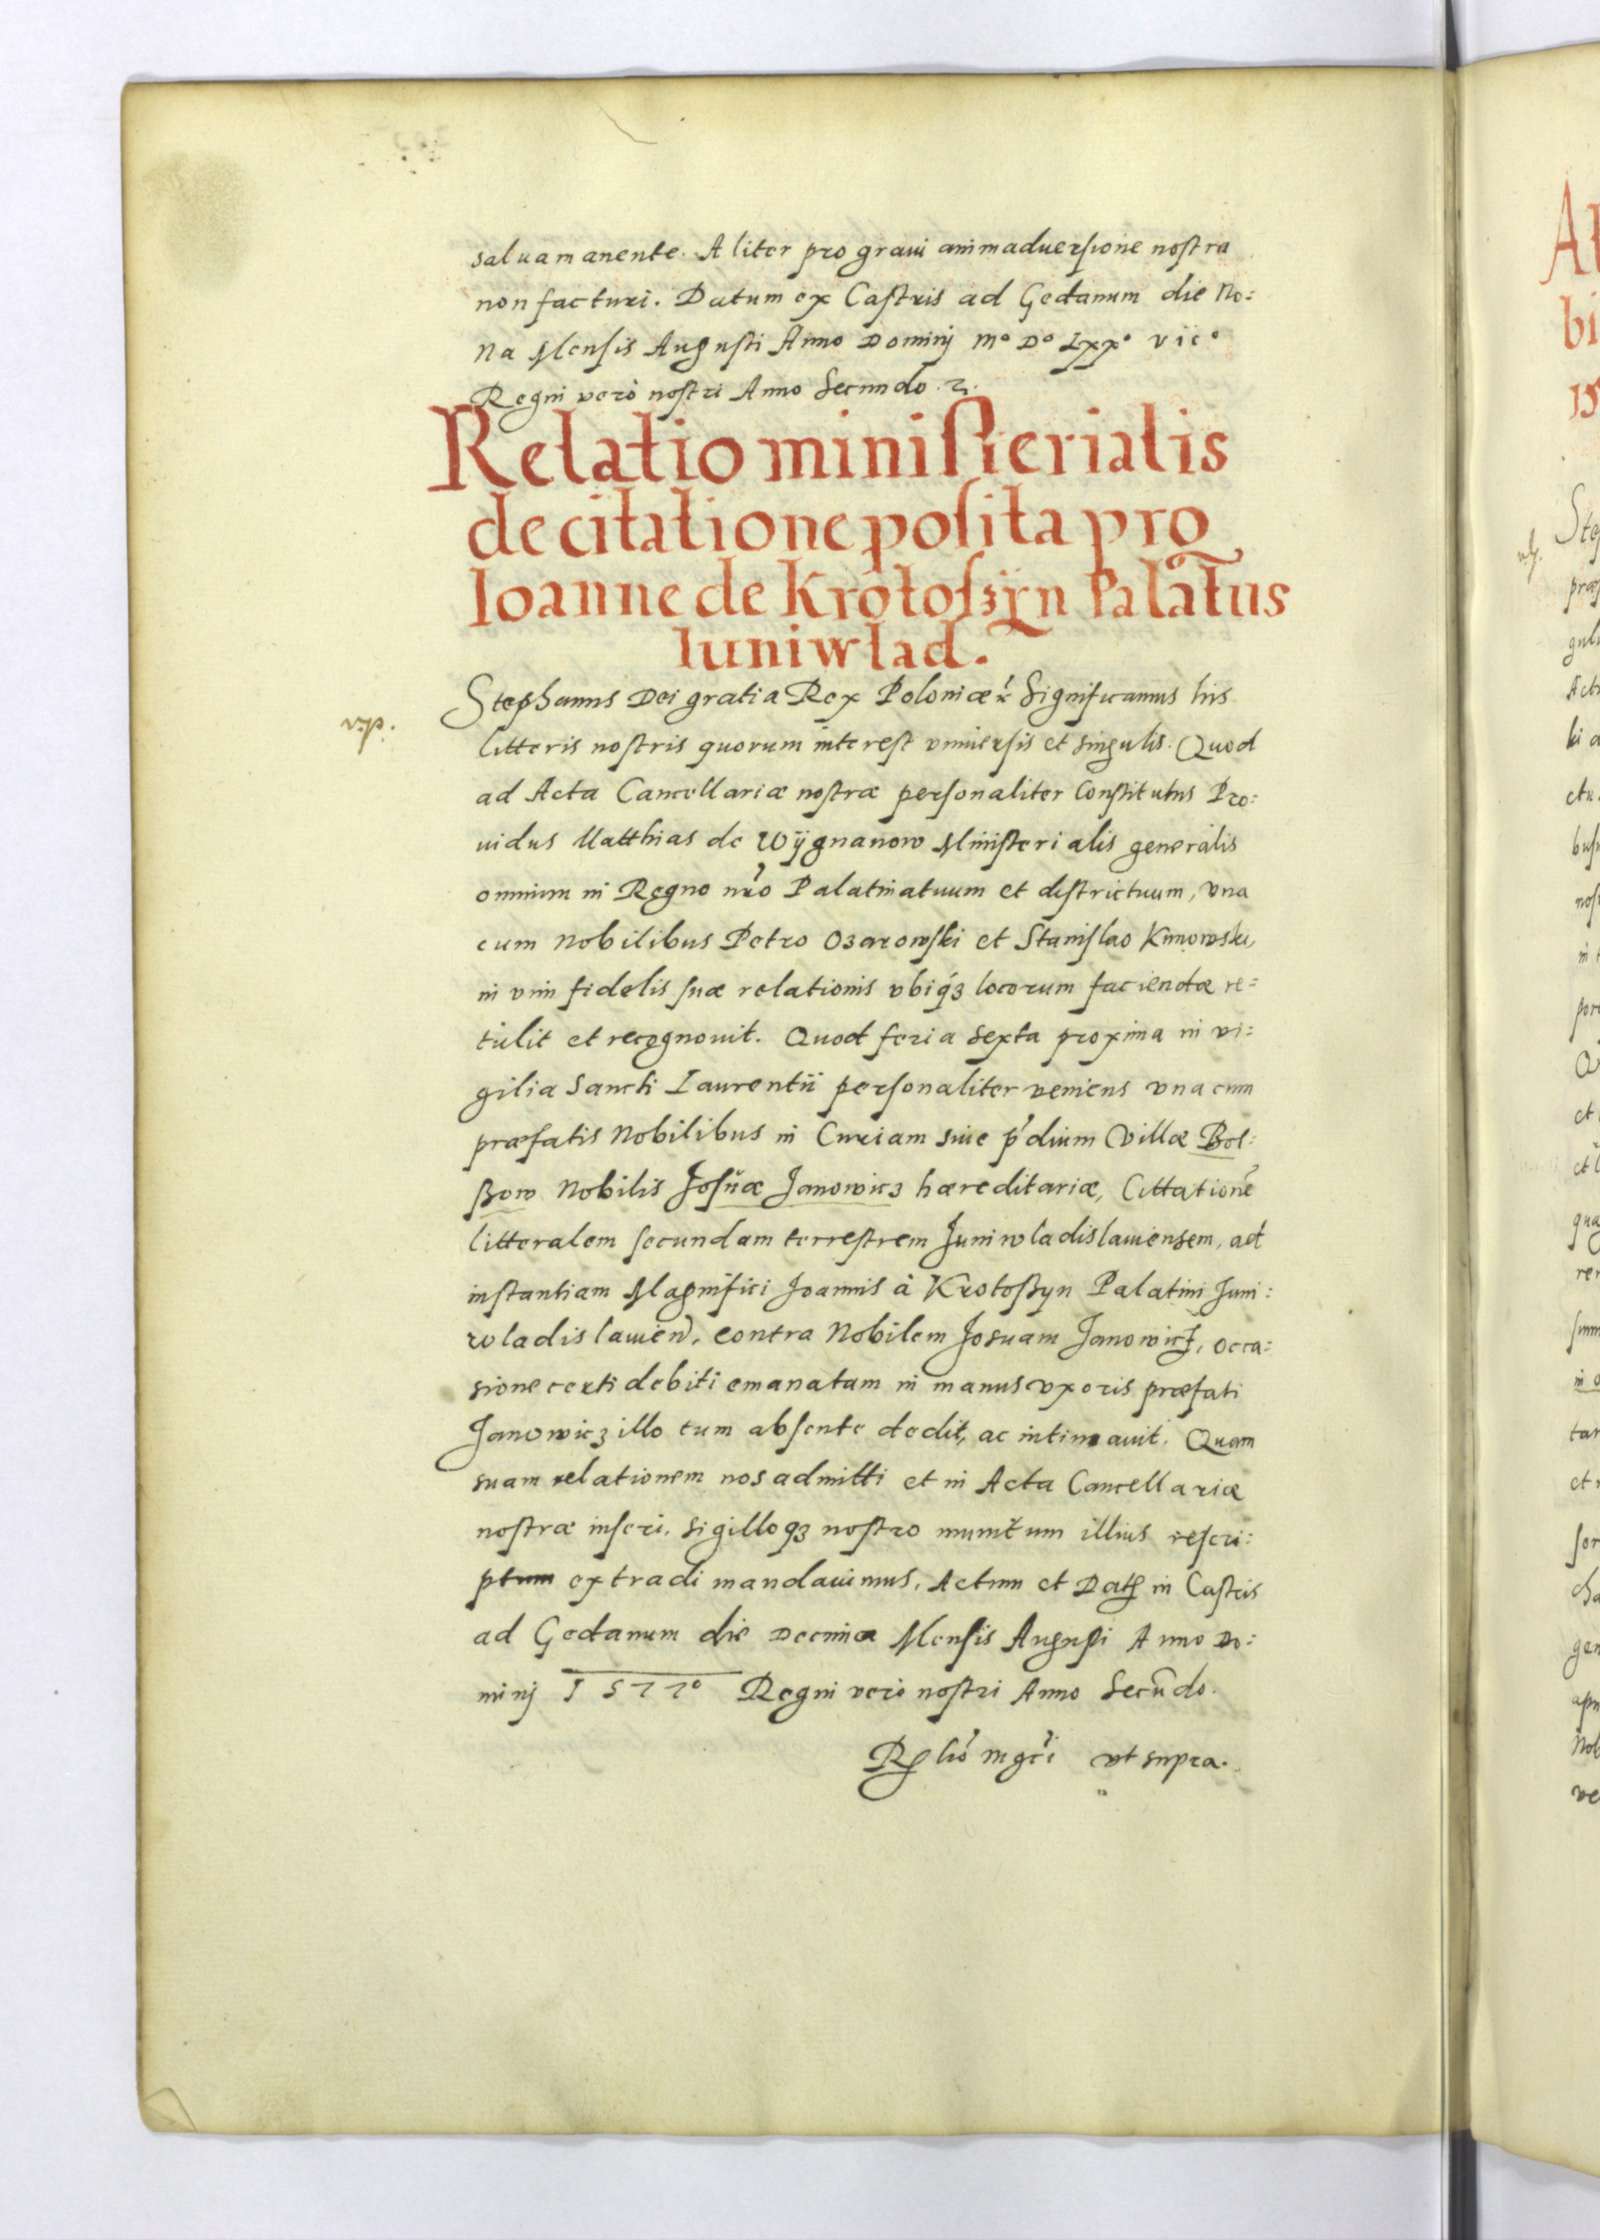 saluam anente. Aliter pro graui animaduersione nostra
non facturi. Datum ex Castris ad Gedanum die No:
na Mensis Augusti Anno Dominij Mº Dº Lxxº viiº
Regni verò nostri Anno Secundo.
Relatio ministerialis
de citatione posita pro
Ioanne de Krotoszÿn Palatus
Iuniwlad.
Stephanus Dei gratia Rex Poloniæ Significamus his
litteris nostris quorum interest vniuersis et singulis. Quod
ad Acta Cancellariæ nostræ personaliter Constitutus Pro:
uidus Matthias de Wÿgnanow Ministerialis generalis
omnium in Regno nrõ Palatinatuum et districtuum, vna
cum Nobilibus Petro Ozarowski et Stanislao Kunowski,
in vim fidelis suæ relationis vbiqz locorum faciendæ re=
tulit et recognouit. Quod feria sexta proxima in vi:
gilia Sancti Laurentii personaliter veniens vna cum
præfatis Nobilibus in Curiam siue p̃dium Villæ Bol:
ßow Nobilis Josuæ Janowicz hæreditariæ, Cittationẽ
litteralem secundam terrestrem Juniwladislauiensem, ad
instantiam Magnifici Joannis à Krotoßyn Palatini Juni:
wladislauien, contra Nobilem Josuam Janowicz, occa:
sione certi debiti emanatam in manus vxoris præfati
Janowicz illo tum absente dedit, ac intimauit. Quam
suam relationem nos admitti et in Acta Cancellariæ
nostræ inseri. Sigilloqz nostro munitum illius rescri:
ptum extradi mandauimus. Actum et Dat in Castris
ad Gedanum die Decima Mensis Augusti Anno Do:
minij 1577º Regni verò nostri Anno Secũdo.
Rlió mgri vt supra.